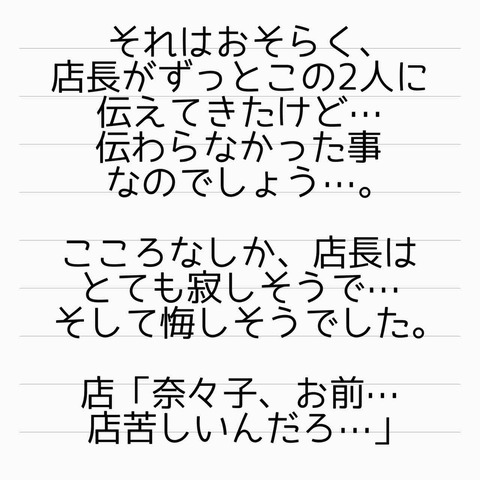 それはおそらく、
店長がずっとこの2人に
伝えてきたけど…
伝わらなかった事
なのでしょう…。
こころなしか、店長は
とても寂しそうで…
そして悔しそうでした。
店「奈々子、お前…
店苦しいんだろ…」